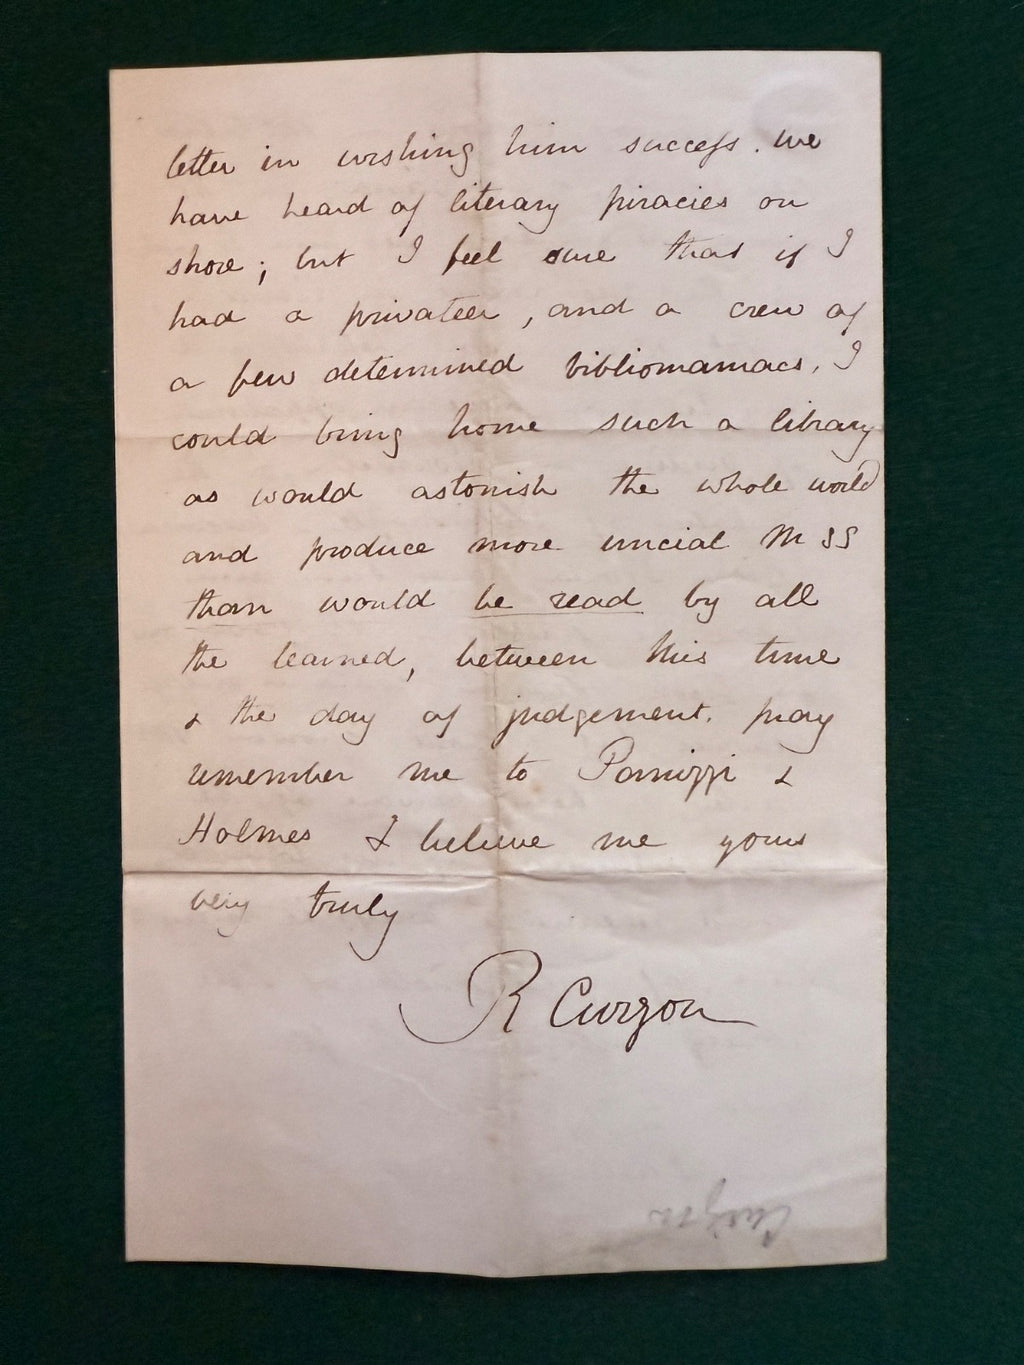 letter in wishing him success. we
have heard of literary piracies on
shore; but I feel sure that if I
had a privateer, and a crew of
a few determined bibliomaniacs, I
could bring home such a library
as would astonish the whole world
and produce more uncial MSS
than would be read by all
the learned, between this time
& the day of judgement. pray
remember me to Pannizzi &
Holmes & believe me yours
very truly
R Curzon
Curzon